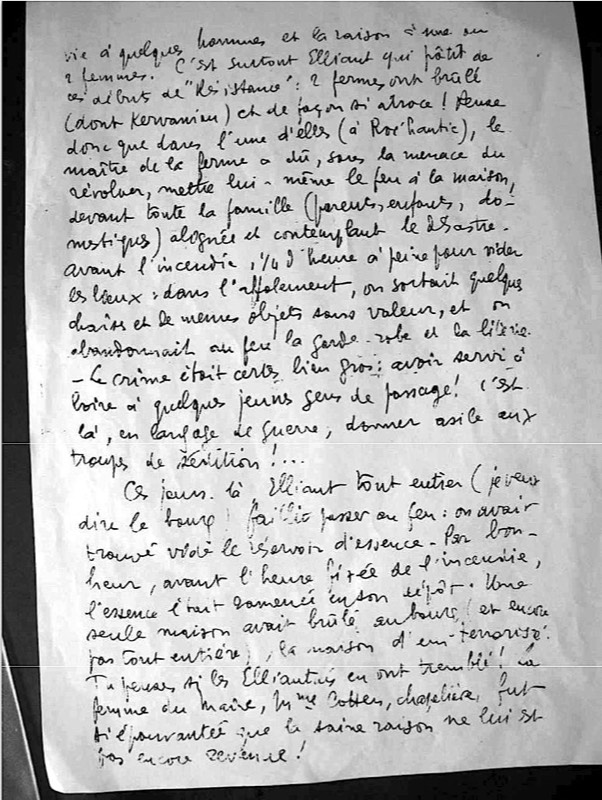 vie à quelques hommes et la raison à une ou
2 femmes. C'est surtout Elliant qui pâtit de
ces débuts de "Résistance": 2 fermes ont brûlé
(dont Kervanien) et de façon si atroce! Pense
donc que dans l'une d'elles (à Roc'hantic), le
maître de la ferme a dû, sous la menace du
révolver, mettre lui-même le feu à la maison,
devant toute la famille (parents, enfants, do-
mestiques) alignée et contemplant le désastre.
Avant l'incendie, 1/4 d'heure à peine pour vider
les lieux: dans l'affolement, on sortait quelques
chaises et de menus objets sans valeur, et on
abandonnait au feu la garde-robe et la literie.
- Le crime était certes bien gros: avoir servi à
boire à quelques jeunes gens de passage! C'est
là, en langage de guerre, donner asile aux
troupes de sédition!...
Ces jours-là, Elliant tout entier (je veux
dire le bourg) faillit passer au feu: on avait
trouvé vidé le réservoir d'essence. Par bon-
heur, avant l'heure fixée de l'incendie,
l'essence était ramenée en son dépôt. Une
seule maison avait brûlé au bourg (et encore
pas tout entière), la maison d'un "terroriste".
Tu penses si les Elliantais en ont tremblé! La
femme du maire, Mme Cotten, chapelière, fut
si épouvantée que la saine raison ne lui est
pas encore revenue!